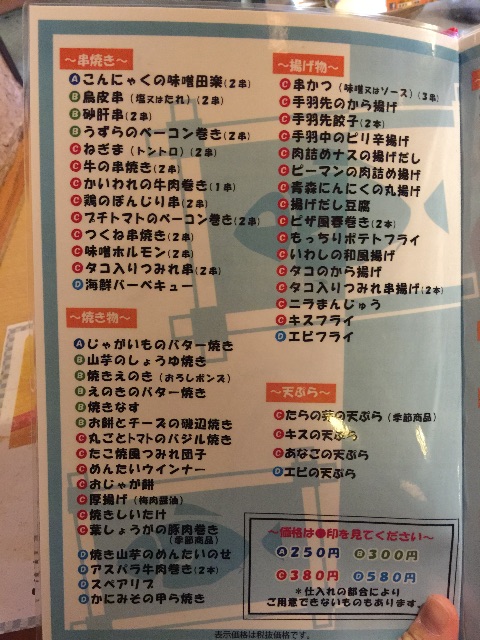 ～串焼き～
Aこんにゃくの味噌田楽(2串)
B鳥皮串(塩又はたれ)(2串)
B砂肝串(2串)
Bうずらのベーコン巻き(2串)
Cねぎま(トントロ)(2串)
C牛の串焼き(2串)
Cかいわれの牛肉巻き(1串)
C鶏のぼんじり串(2串)
Cプチトマトのベーコン巻き(2串)
Cつくね串焼き(2串)
C味噌ホルモン(2串)
Cタコ入りつみれ串(2串)
D海鮮バーベキュー
～焼き物～
Aじゃがいものバター焼き
B山芋のしょうゆ焼き
B焼きえのき(おろしポンズ)
Bえのきのバター焼き
B焼きなす
Bお餅とチーズの磯辺焼き
C丸ごとトマトのバジル焼き
Cたこ焼風つみれ団子
Cめんたいウインナー
Cおじゃが餅
C厚揚げ(梅肉醤油)
C焼きしいたけ
C葉しょうがの豚肉巻き
(季節商品)
D焼き山芋のめんたいのせ
Dアスパラ牛肉巻き(2本)
Dスペアリブ
Dかにみその甲ら焼き
～揚げ物～
C串かつ(味噌又はソース)(3串)
C手羽先のから揚げ
C手羽先餃子(2本)
C手羽中のピリ辛揚げ
C肉詰めナスの揚げだし
Cピーマンの肉詰め揚げ
C青森にんにくの丸揚げ
C揚げだし豆腐
Cピザ風春巻き(2本)
Cもっちりポテトフライ
Cいわしの和風揚げ
Cタコのから揚げ
Cタコ入りつみれ串揚げ(2本)
Cニラまんじゅう
Cキスフライ
Dエビフライ
～天ぷら～
Cたらの芽の天ぷら(季節商品)
Cキスの天ぷら
Cあなごの天ぷら
Dエビの天ぷら
～価格は●印を見てください～
A250円 B300円
C380円 D580円
＊仕入れの都合により
ご用意できないものもあります。
表示価格は税抜価格です。